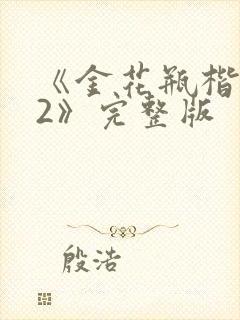 《金花瓶楷
2》完整版
殷浩